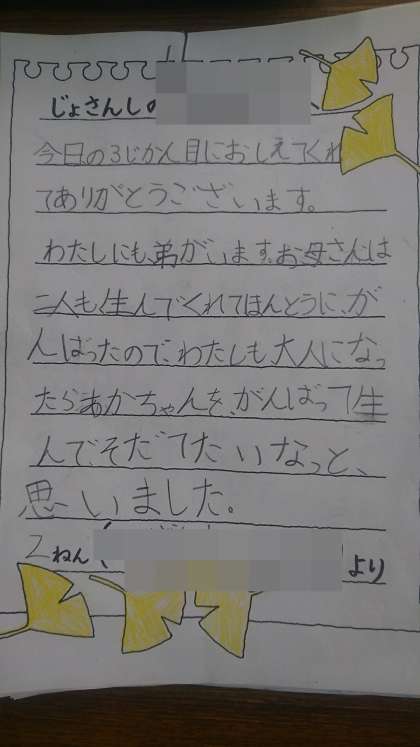 じょさんしの
今日の3じかん目におしえてくれ
てありがとうございます。
わたしにも、弟がいます。お母さんは
二人も生んでくれてほんとうに、が
んばったので、わたしも大人になっ
たらあかちゃんを、がんばって生
んで、そだてたいなっと、
思いました。
2ねん、
より